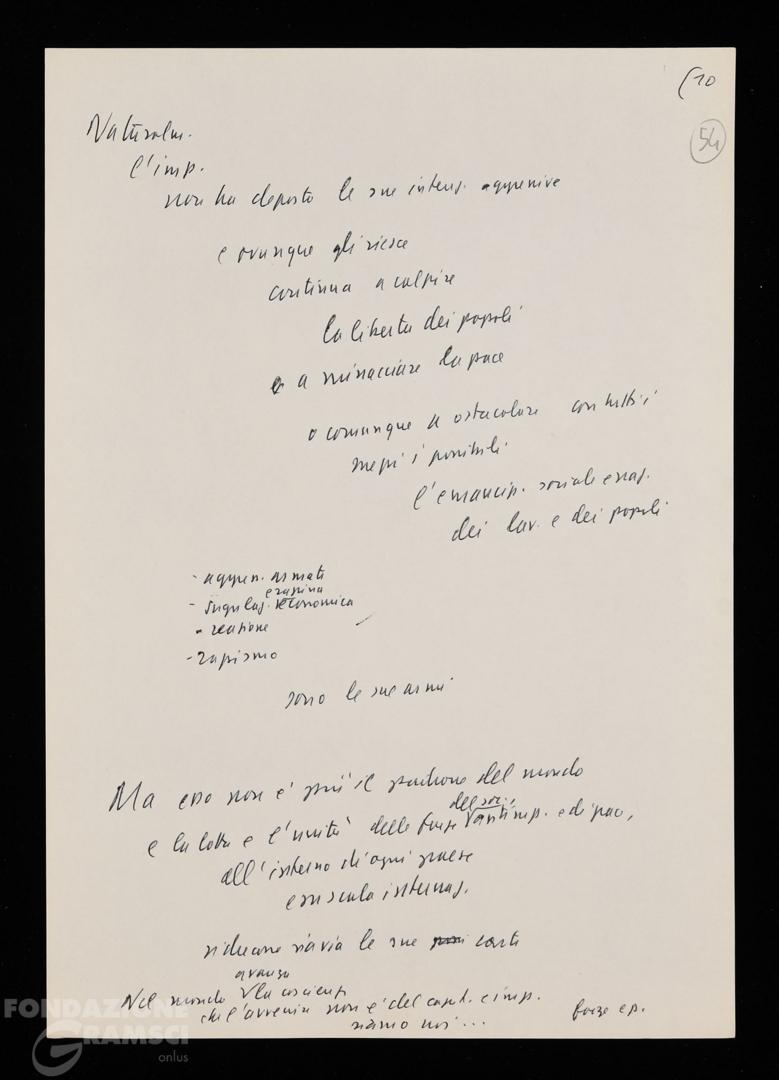 (10
54
Naturalm.
l'imp.
non ha deposto le sue intenz. aggressive
e ovunque gli riesce
continua a colpire
la libertà dei popoli
e a minacciare la pace
o comunque a ostacolare con tutti i
mezzi i possibili
l'emancip. sociale e naz.
dei lav. e dei popoli
- aggress. armate
e rapina
- economica
- reazione
- razzismo
sono le sue armi
Ma esso non è più il padrone del mondo
del soc.,
e la lotta e l'unità delle forze antimp. e di pace,
all'interno di ogni paese
e su scala internaz.
riducono via via le sue carte
avanza
Nel mondo la coscienz
che l'avvenire non è del capit. e imp. forze e p.
siamo noi...
FONDAZIONE
GRAMSCI
onlus